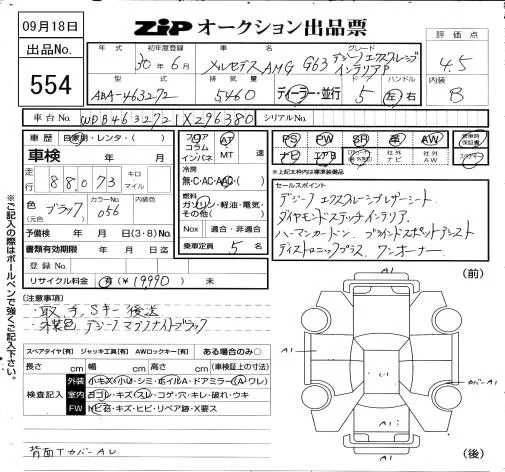 09月18日
ZIP オークション出品票
出品No.
554
年式 初年度登録 車名 グレード 評価点
30年6月 メルセデスAMG G63 デジーノエクスクルーシブインテリアP 4.5
型式 排気量 ドア ハンドル 内装
ABA-463272 5,460 ディーラー・並行 5 左・右 B
車台No. WDB4632721X296380 シリアルNo.
車歴 自家用・レンタ・( )
フロア コラム インパネ AT MT 速
PS PW SR 革 AW 新車時保証書
車検 年 月
ナビ エアB 社外ナビ 社外AW スペアキー
走行 88,073 キロ マイル
冷房 無・C・AC・AAC・( )
※上記太枠内は装備品
燃料 ガソリン・軽油・電気・その他( )
セールスポイント
色(元色) ブラック カラーNo. 056 内装色
デジーノ エクスクルーシブレザーシート
予備検 年 月 日(3・8)No.
Nox 適合・非適合
ダイヤモンドステッチインテリア
書類有効期限 年 月 日迄
乗車定員 5名
ハーマンカードン ブラインドスポットアシスト
登録No.
ディストロニックプラス ワンオーナー
リサイクル料金 有(¥19990) 未
(注意事項)
・取、手、Sキー 後送
デジーノ マグナイトブラック
スペアタイヤ[有] ジャッキ工具[有] AWロックキー[有] ある場合のみ○
長さ cm 幅 cm 高さ cm (車検証上の寸法)
検査記入
外装 小キズ・小U・シミ・ホイルA・ドアミラー(A・ワレ)
室内 ヨゴレ・キズ・スレ・コゲ・穴・キレ・破れ・ウキ
FW トビ石・キズ・ヒビ・リペア跡・X要ス
背面TカバーAU
A1
(前)
A1
カバーA1
A1
A1
(後)
※ご記入の際はボールペンで強くご記入下さい。